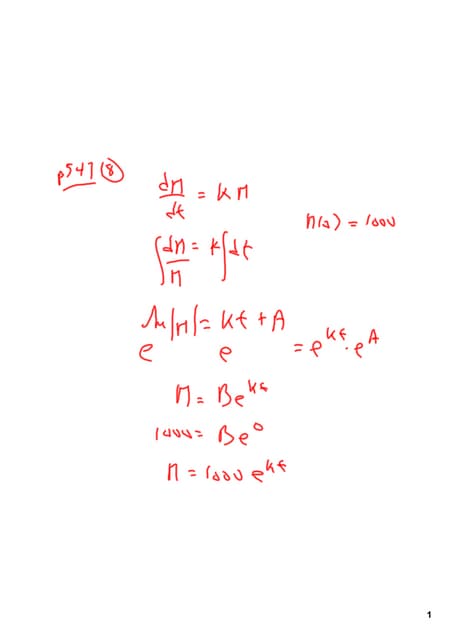 p547 ⑧
dn/dt = kn
n(0) = 1000
∫dn/n = k∫dt
ln|n| = kt + A
e e = e^kt · e^A
n = Be^kt
1000 = Be^0
n = 1000 e^kt
1